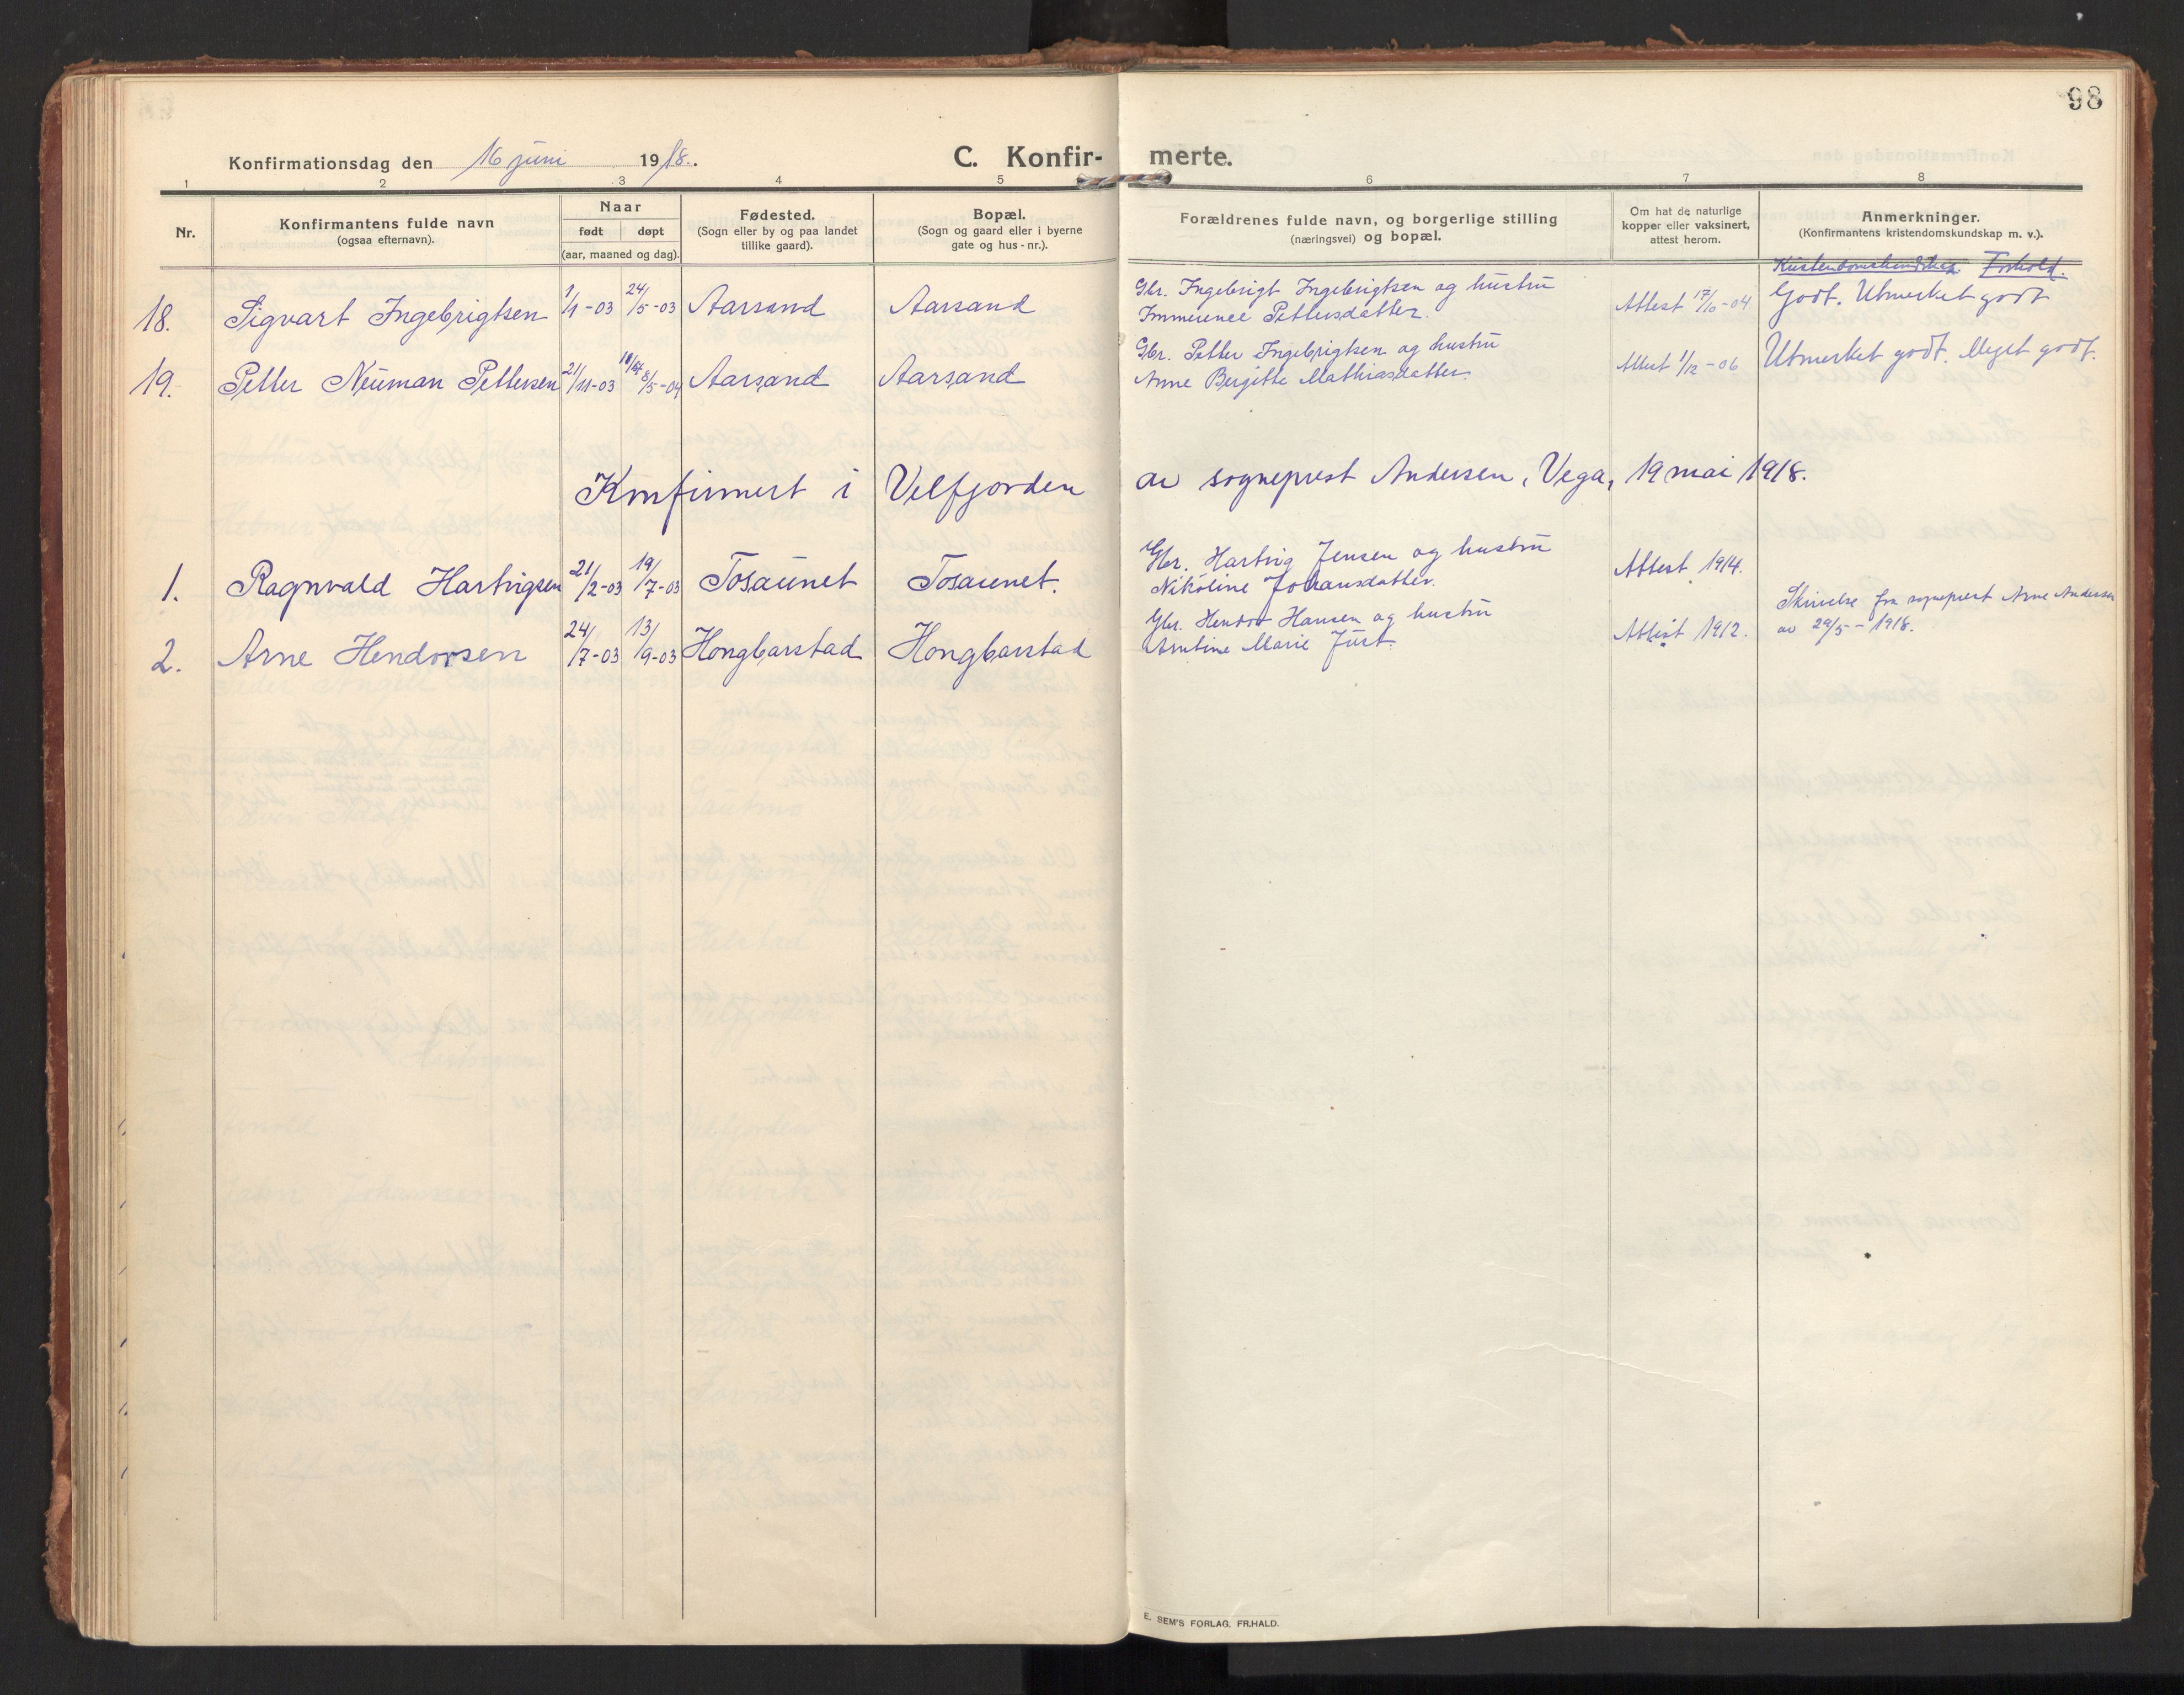 98
Konfirmationsdag den 16 juni 1918.
C. Konfir- merte.
1 2 3 4 5 6 7 8
Nr.
Konfirmantens fulde navn
(ogsaa efternavn).
Naar
født døpt
(aar, maaned og dag).
Fødested.
(Sogn eller by og paa landet
tillike gaard).
Bopæl.
(Sogn og gaard eller i byerne
gate og hus-nr.).
Forældrenes fulde navn, og borgerlige stilling
(næringsvei) og bopæl.
Om hat de naturlige
kopper eller vaksinert,
attest herom.
Anmerkninger.
(Konfirmantens kristendomskundskap m. v.).
Kristendomskundskap. Forhold.
18. Sigvart Ingebrigtsen 1/1-03 24/5-03 Aarsand Aarsand
Gbr. Ingebrigt Ingebrigtsen og hustru
Immerence Pettersdatter.
Attest 17/10-04 Godt. Utmerket godt
19. Petter Neuman Pettersen 21/11-03 8/5-04 Aarsand Aarsand
Gbr. Petter Ingebrigtsen og hustru
Anne Bergitte Mathiasdatter.
Attest 1/12-06 Utmerket godt. Meget godt.
Konfirmert i Velfjorden av sogneprest Andersen, Vega, 19 mai 1918.
1. Ragnvald Hartvigsen 21/2-03 19/7-03 Tosaunet Tosaunet.
Gbr. Hartvig Jensen og hustru
Nikoline Johansdatter.
Attest 1914.
2. Arne Hendorsen 24/7-03 13/9-03 Hongbarstad Hongbarstad
Gbr. Hendor Hansen og hustru
Arntine Marie Just.
Attest 1912.
Skrivelse fra sogneprest Arne Andersen
av 29/5-1918.
E. SEM'S FORLAG. FR.HALD.